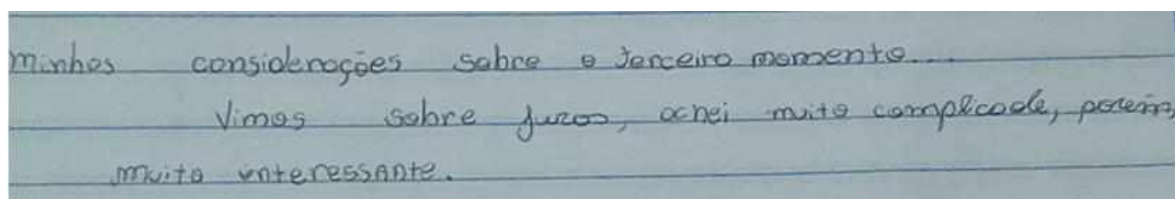 minhas considerações sobre o terceiro momento...
Vimos sobre juros, achei muito complicado, porém,
muito interessante.